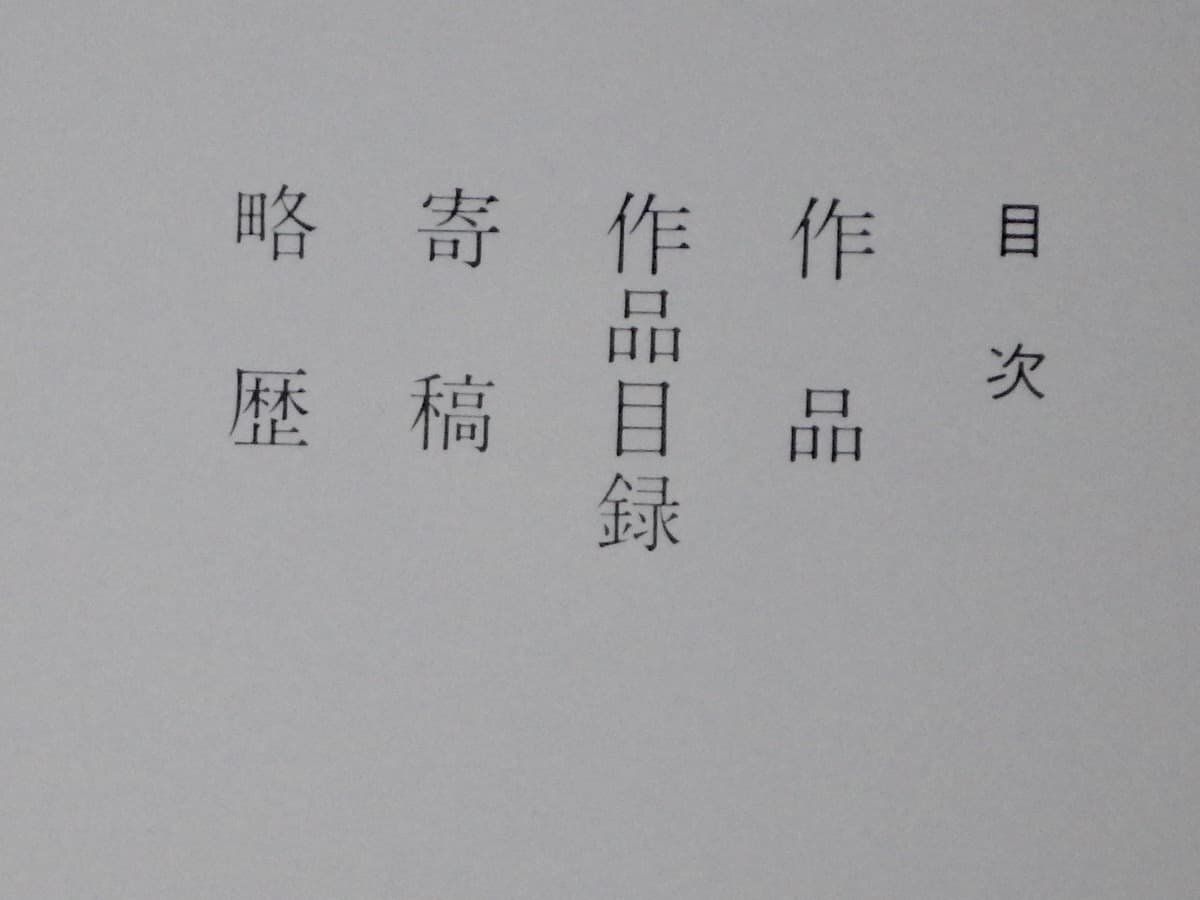 目次
作品
作品目録
寄稿
略歴